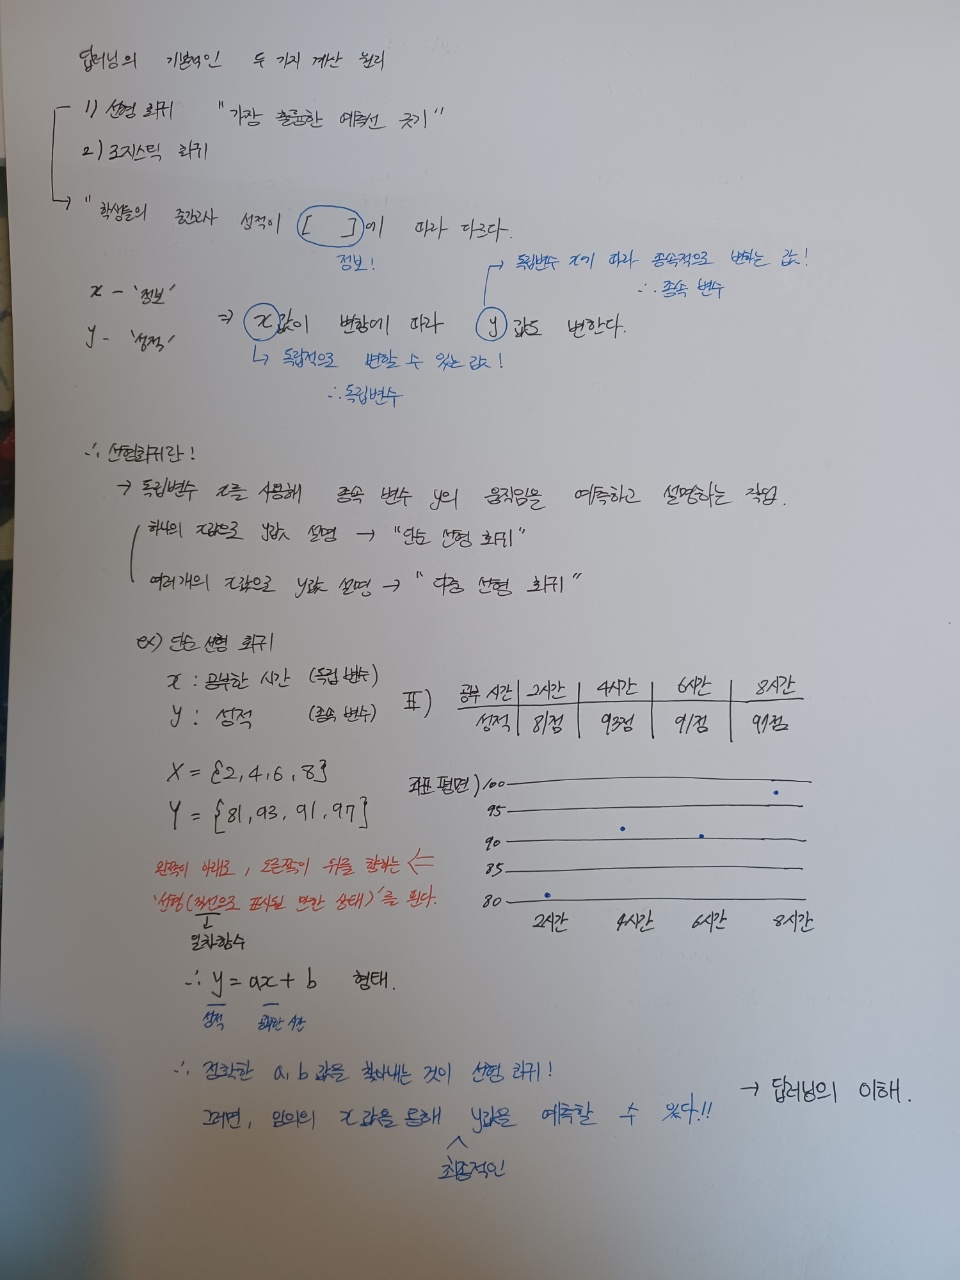 딥러닝의 기본적인 두 가지 계산 원리
1) 선형 회귀 "가장 훌륭한 예측선 긋기"
2) 로지스틱 회귀
"학생들의 중간고사 성적이 [ ]에 따라 다르다.
정보!
x - '정보'
y - '성적'
독립변수 x에 따라 종속적으로 변하는 값!
∴ 종속 변수
⇒ x값이 변함에 따라 y값도 변한다.
↳ 독립적으로 변할 수 있는 값!
∴ 독립변수
∴ 선형회귀란!
→ 독립변수 x를 사용해 종속 변수 y의 움직임을 예측하고 설명하는 작업.
하나의 x값으로 y값 설명 → "단순 선형 회귀"
여러개의 x값으로 y값 설명 → "다중 선형 회귀"
ex) 단순 선형 회귀
x : 공부한 시간 (독립 변수)
y : 성적 (종속 변수)
표)
공부 시간 2시간 4시간 6시간 8시간
성적 81점 93점 91점 97점
X = {2, 4, 6, 8}
Y = {81, 93, 91, 97}
좌표 평면)
100
95
90
85
80
2시간 4시간 6시간 8시간
왼쪽이 아래로, 오른쪽이 위를 향하는 ⇐
'선형(직선으로 표시될 만한 상태)'를 띈다.
일차함수
∴ y = ax + b 형태.
성적 공부한 시간
∴ 정확한 a, b 값을 찾아내는 것이 선형 회귀!
그러면, 임의의 x값을 통해 y값을 예측할 수 있다!!
최종적인
→ 딥러닝의 이해.